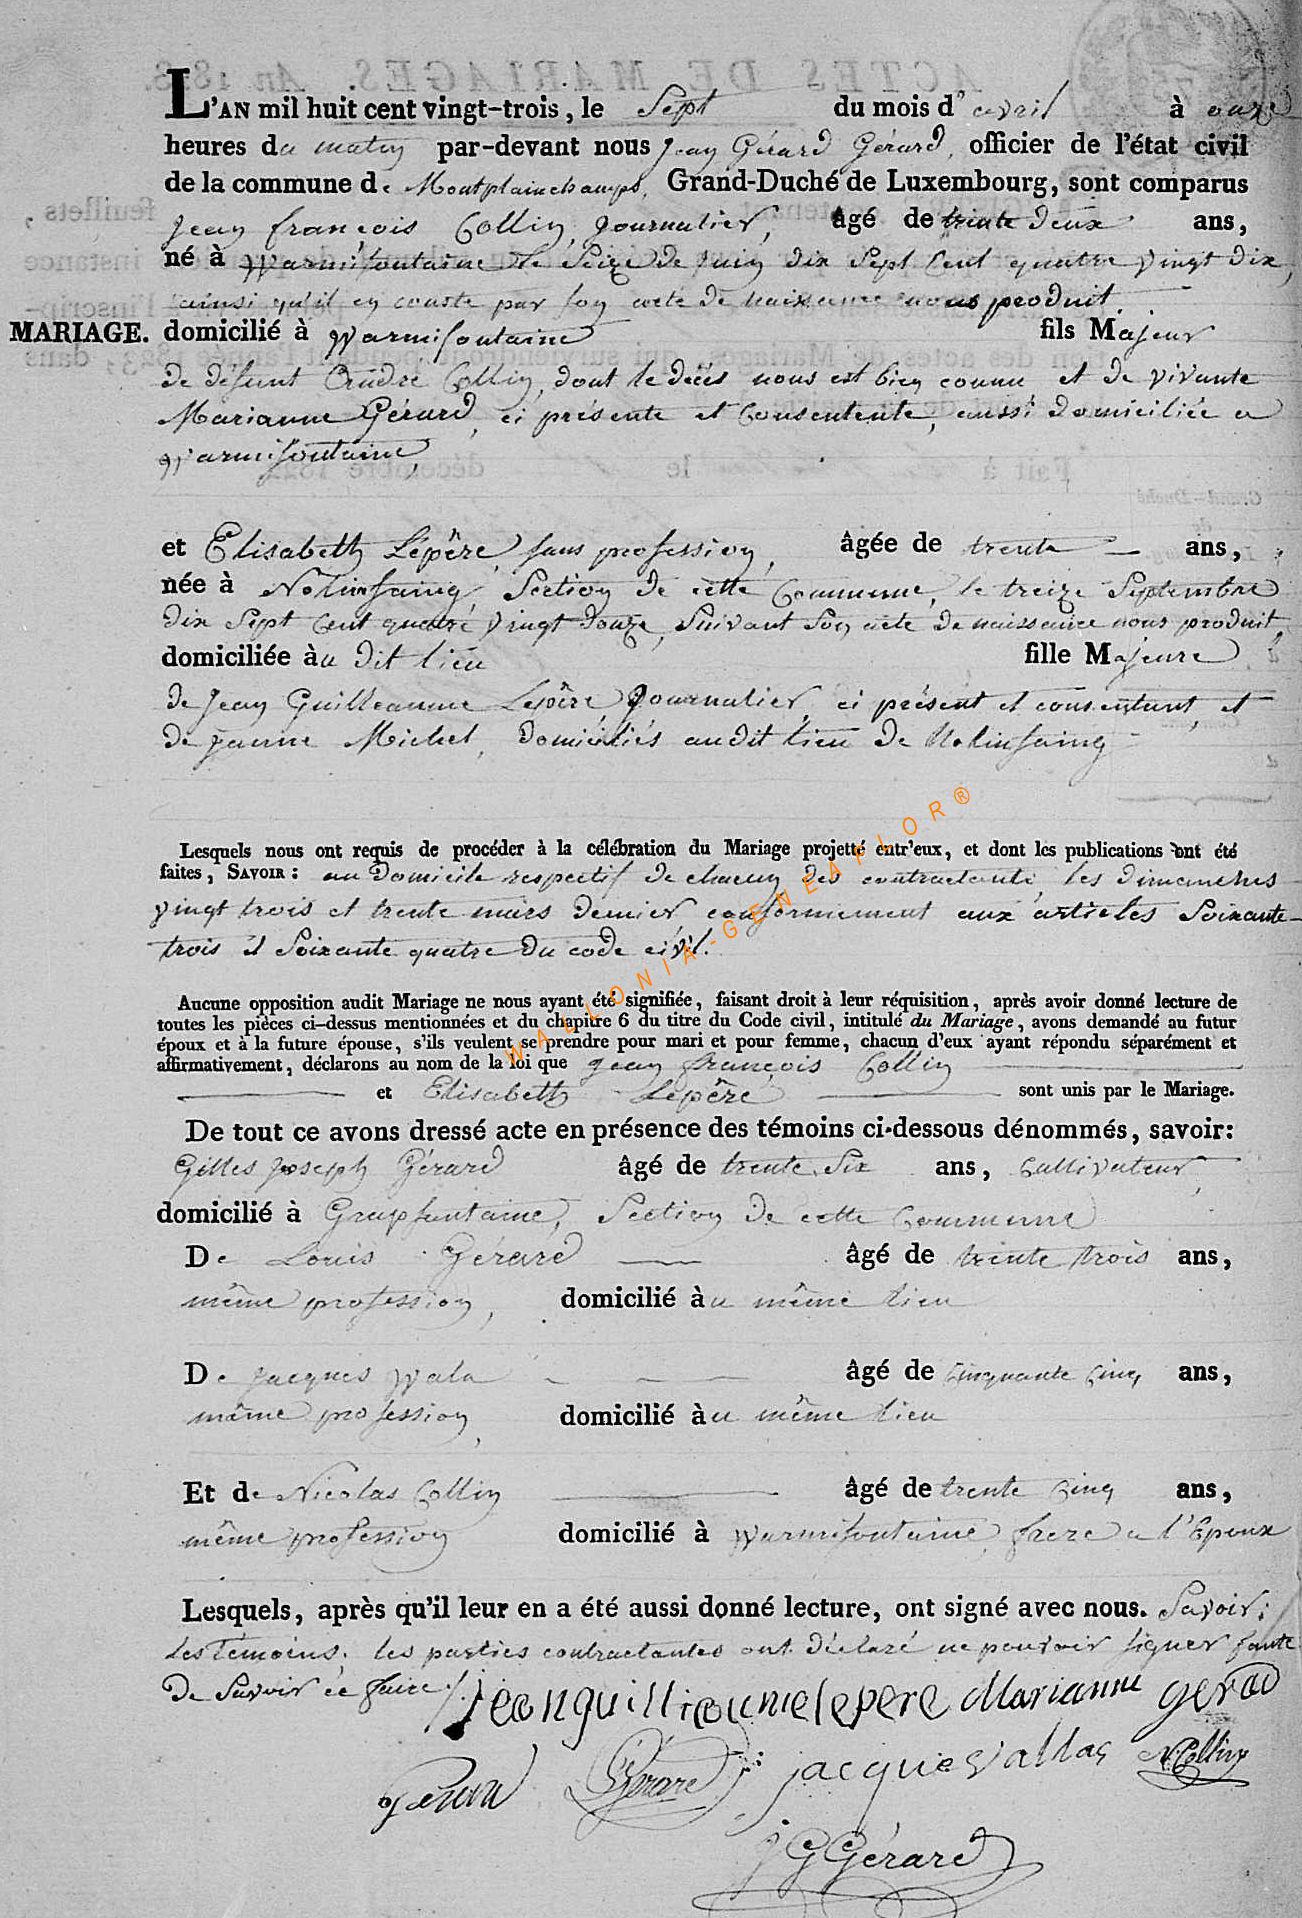 L'AN mil huit cent vingt-trois, le Sept du mois d'avril à onze
heures du matin par-devant nous Jean Gérard Gérard, officier de l'état civil
de la commune de Montplainchamps, Grand-Duché de Luxembourg, sont comparus
Jean françois Collin, Journalier, âgé de trente deux ans,
né à Warmifontaine le Seize de Juin dix Sept Cent quatre vingt dix,
ainsi qu'il en conste par son acte de naissance nous produit
MARIAGE. domicilié à Warmifontaine fils Majeur
de défunt André Collin, dont le décès nous est bien connu et de vivante
Marianne Gérard, ci présente et Consentente, aussi domiciliée a
Warmifontaine,
et Elisabeth Lepêre, sans profession, âgée de trente ans,
née à Nolinfaing, Section de cette Commune, le treize Septembre
dix Sept Cent quatre vingt douze, Suivant Son acte de naissance nous produit,
domiciliée àu dit lieu fille Majeure
de Jean Guilleaume Lepère Journalier, ci présent et consentant, et
de Jeanne Michel, Domiciliés audit lieu de Nolinfaing
Lesquels nous ont requis de procéder à la célébration du Mariage projetté entr'eux, et dont les publications ont été
faites, SAVOIR : au Domicile respectif de chacun des contractants, les dimanches
vingt trois et trente mars dernier conformement aux articles Soixante-
trois et Soixante quatre du code civil.
Aucune opposition audit Mariage ne nous ayant été signifiée, faisant droit à leur réquisition, après avoir donné lecture de
toutes les pièces ci-dessus mentionnées et du chapitre 6 du titre du Code civil, intitulé du Mariage, avons demandé au futur
époux et à la future épouse, s'ils veulent se prendre pour mari et pour femme, chacun d'eux ayant répondu séparément et
affirmativement, déclarons au nom de la loi que Jean françois Collin
et Elisabeth Lepêre sont unis par le Mariage.
De tout ce avons dressé acte en présence des témoins ci-dessous dénommés, savoir:
Gilles Joseph Gérard âgé de trente Six ans, Cultivateur,
domicilié à Grapfontaine, Section de cette Commune
De Louis Gérard âgé de trente trois ans,
même profession, domicilié àu même lieu
De Jacques Wala âgé de Cinquante Cinq ans,
même profession, domicilié àu même lieu
Et de Nicolas Collin âgé de trente Cinq ans,
même profession domicilié à Warmifontaine, frere a l'Epoux
Lesquels, après qu'il leur en a été aussi donné lecture, ont signé avec nous. Savoir;
les témoins. les parties contractantes ont déclaré ne pouvoir signer faute
de Savoir le faire.
jean guillieaume lepere Marianne gerad
Gérard LGérard jacques vallas N:Collin
JGGérard
WALLONIA-GENEAFLOR®